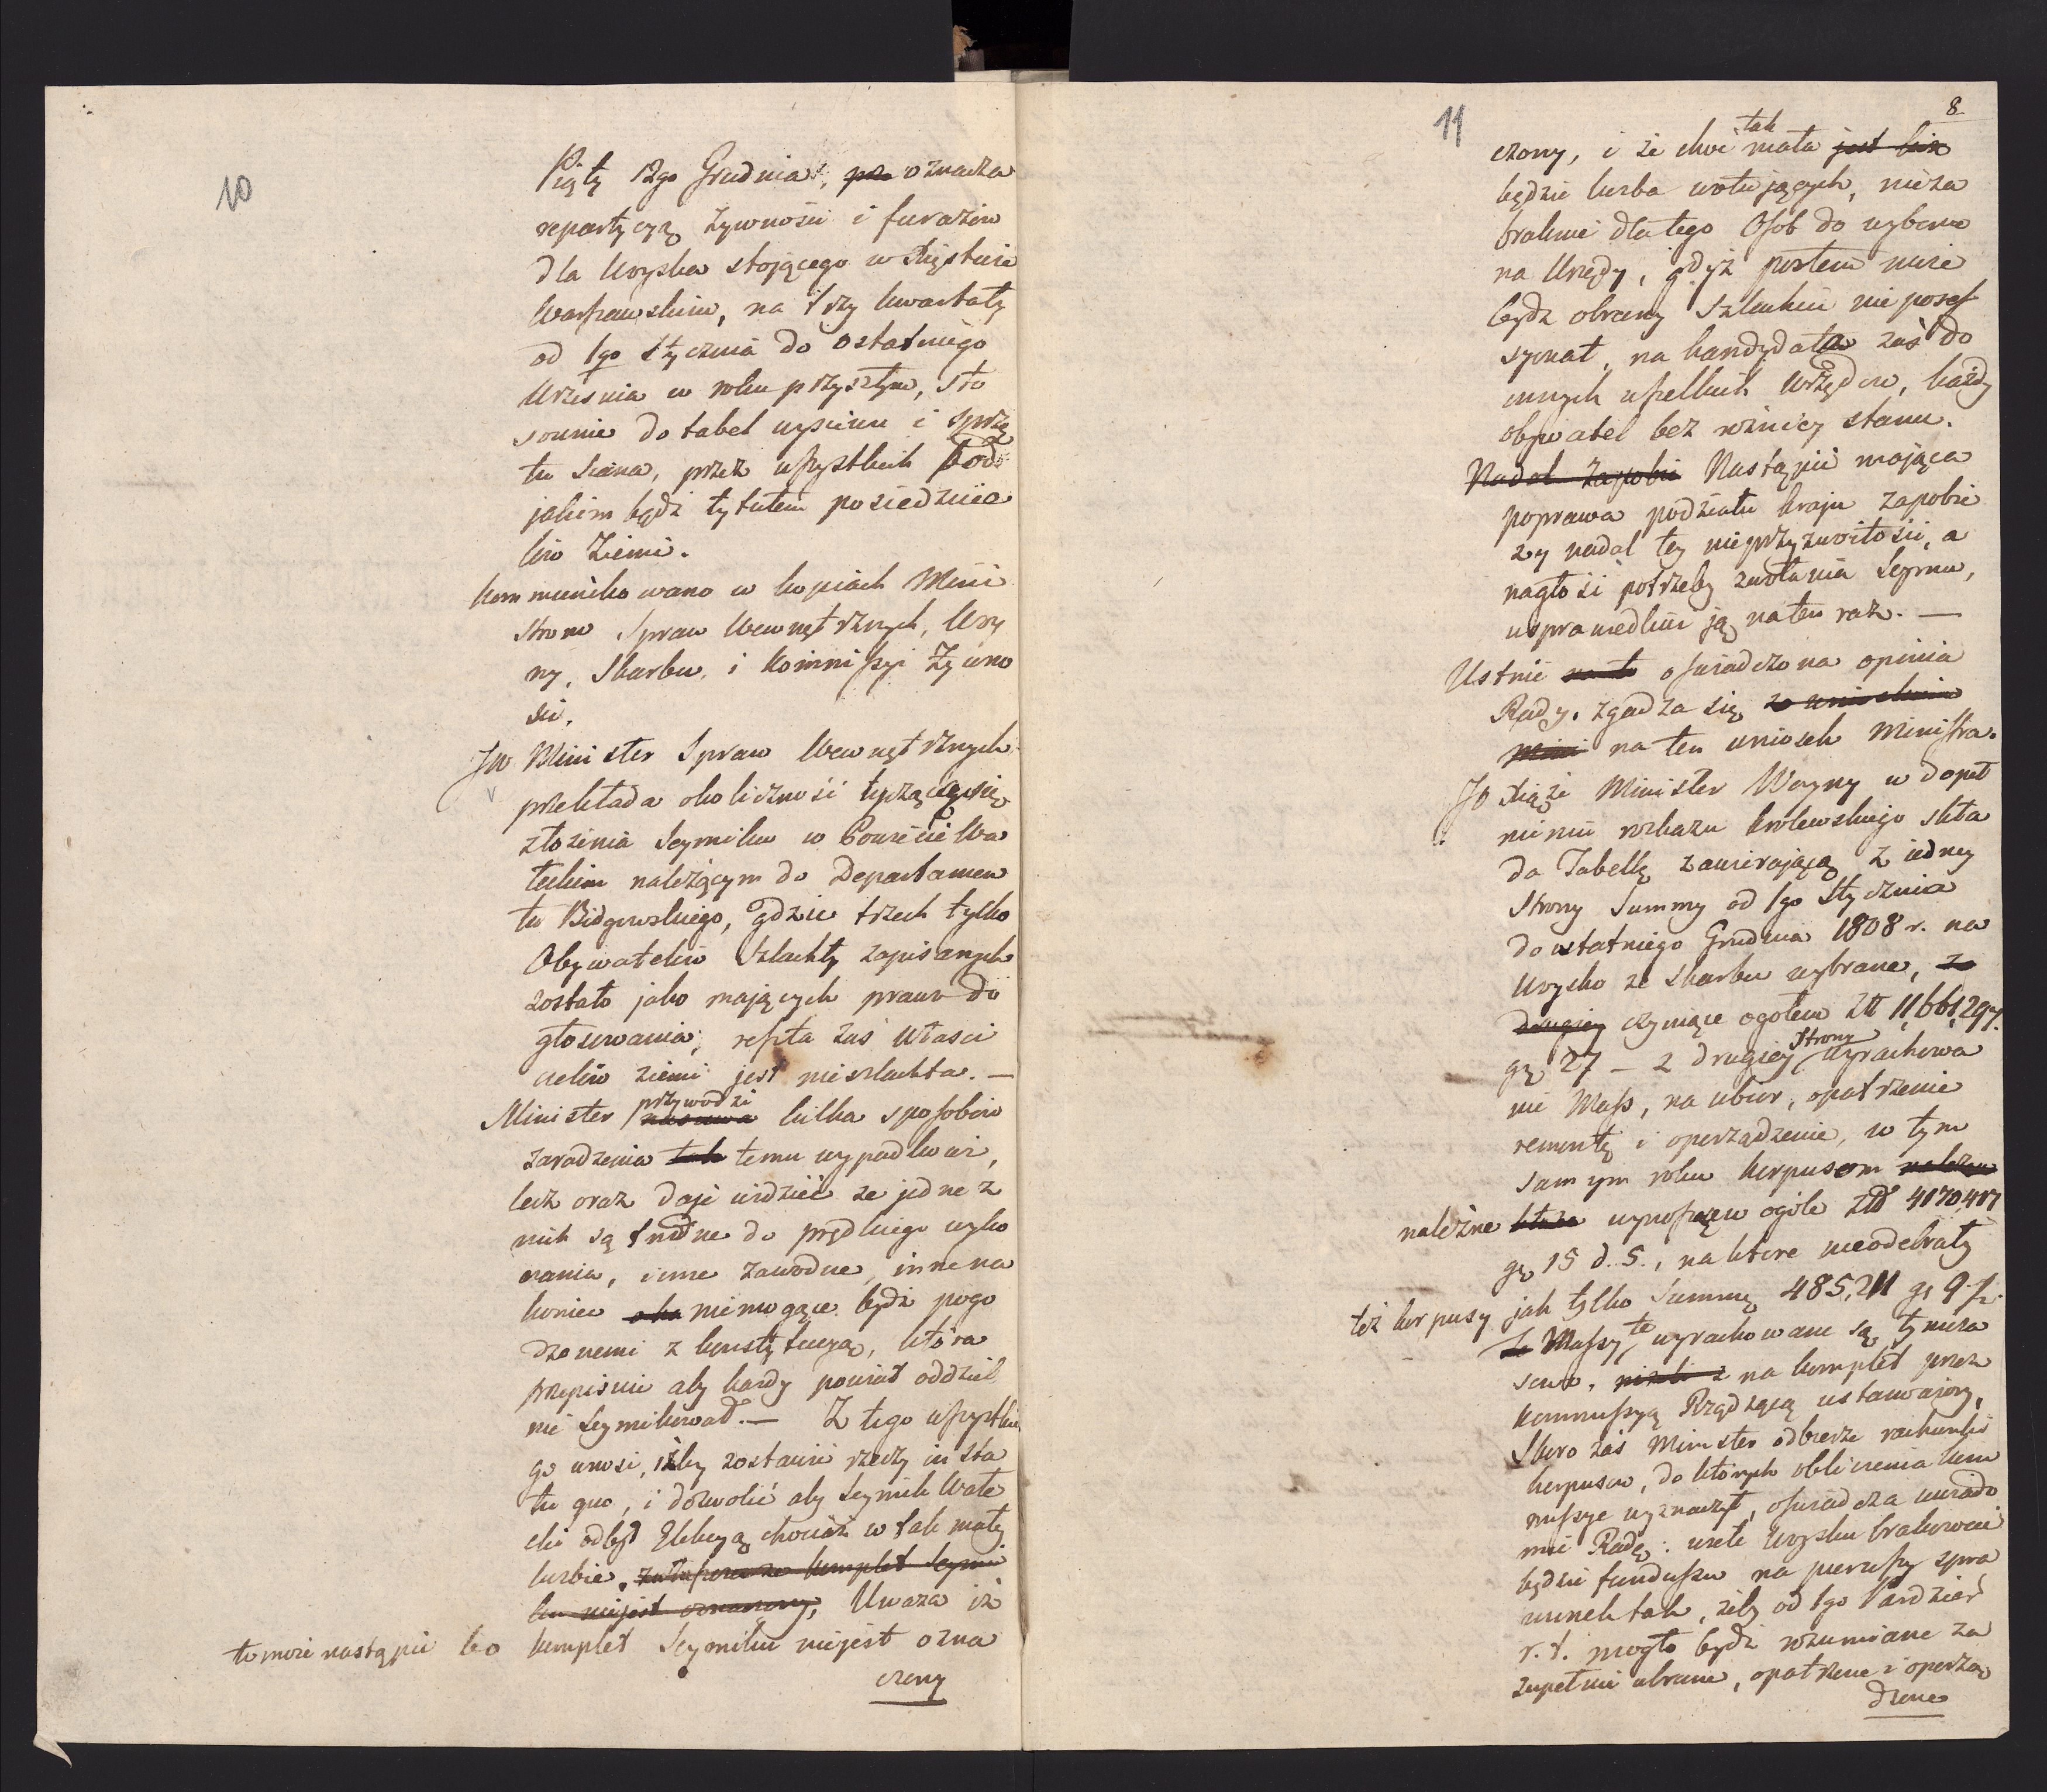 10
Piąty 12go Grudnia, ~~prze~~ oznacza
repartycyą żywności i furazów
dla Woyska stojącego w Xięstwie
Warszawskim, na trzy kwartały
od 1go Stycznia do ostatniego
Września w roku przyszłym, sto
sownie do tabel wysiewu i sprzę
tu siana, przez wszystkich pod
jakim bądź tytułem posiedzicie
lów Ziemi.
Kommunikowano w kopiach Mini
strom Spraw Wewnętrznych, Woy
ny, Skarbu, i Kommissyi Żywno
ści.
JW Minister Spraw Wewnętrznych
przekłada okoliczność tyczącą się
złożenia Seymiku w Powiecie Wa
łeckim należącym do Departamen
tu Bidgoskiego, gdzie trzech tylko
Obywatelów Szlachty zapisanych
zostało jako mających prawo do
głosowania; reszta zaś własci
cielów ziemi jest nieszlachta. —
przywodzi
Minister ~~nasuwa~~ kilka sposobów
zaradzenia ~~tak~~ temu wypadkowi,
lecz oraz daje widzieć że jedne z
nich są trudne do prędkiego wyko
nania, inne zawodne, inne na
koniec niemogące bydź pogo
dzonemi z konstytucyą, która
przepisuie aby każdy powiat oddziel
nie Seymikował. — Z tego wszystkie
go wnosi, iżby zostawić rzeczy in sta
tu quo, i dozwolić aby Seymik Wałe
cki odbył Elekcyą chociaż w tak małey
liczbie, ~~komplet Seymi~~
~~ku niejest oznaczony,~~ Uważa iż
to może nastąpić bo komplet Seymiku niejest ozna
czony
11
8
tak
czony, i że choć mała ~~jest licz~~
będzie liczba wotujących, nieza
braknie dla tego Osób do wyboru
na Urzędy, gdyż posłem może
bydź obrany Szlachcic nie posses
syonat, na kandydata zaś do
innych wszelkich Urzędów, każdy
obywatel bez różnicy stanu.
~~Nadal zapobie~~ Nastąpić mająca
poprawa podziału kraju zapobie
ży nadal tey nieprzyzwoitości, a
nagłość potrzeby zwołania Seymu,
usprawiedliwi ją na ten raz. —
Ustnie ~~na to~~ oświadczona opinia
Rady, zgadza się ~~z wnioskiem~~
~~Mini~~ na ten wniosek Ministra.
JO Xiąże Minister Woyny w dopeł
nieniu rozkazu królewskiego skła
da Tabellę zawierającą z iedney
Strony Summy od 1go Stycznia
do ostatniego Grudnia 1808 r. na
Woysko ze Skarbu wybrane, ~~z~~
~~drugiey~~ czyniące ogołem Złł
Strony
gr 27 — z drugiey wyrachowa
nie Mass, na ubior, opatrzenie
remontę i oporządzenie, w tym
samym roku korpusom ~~należne~~
należne wynoszącą ogóle Złł
gr 15 d. 5., na które nieodebrały
też korpusy jak tylko Summę 485,211 gr 9.
te
~~Te~~ Massy wyrachowane są tymcza
sowo, na komplet przez
Kommissyą Rządzącą ustanowiony.
Skoro zaś Minister odbierze rachunki
korpusów, do których obliczenia kom
missye wyznaczył, oświadcza uwiado
mić Radę: wiele Woysku brakować
będzie funduszu na pierwszy spra
wunek tak, żeby od 1go Pazdzier
r. t. mogło bydź rozumiane za
zupełnie ubrane, opatrzone i oporzą
dzone